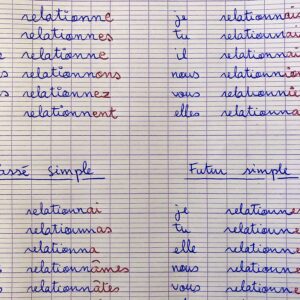 relationne je relationnai
relationnes tu relationnai
relationne il relationnai
s relationnons nous relationnio
s relationnez vous relationnie
s relationnent elles relationna
assé simple Futur simple
relationnai je relationne
relationnas tu relationne
relationna elle relationne
s relationnâmes nous relationne
s relationnâtes vous relationne